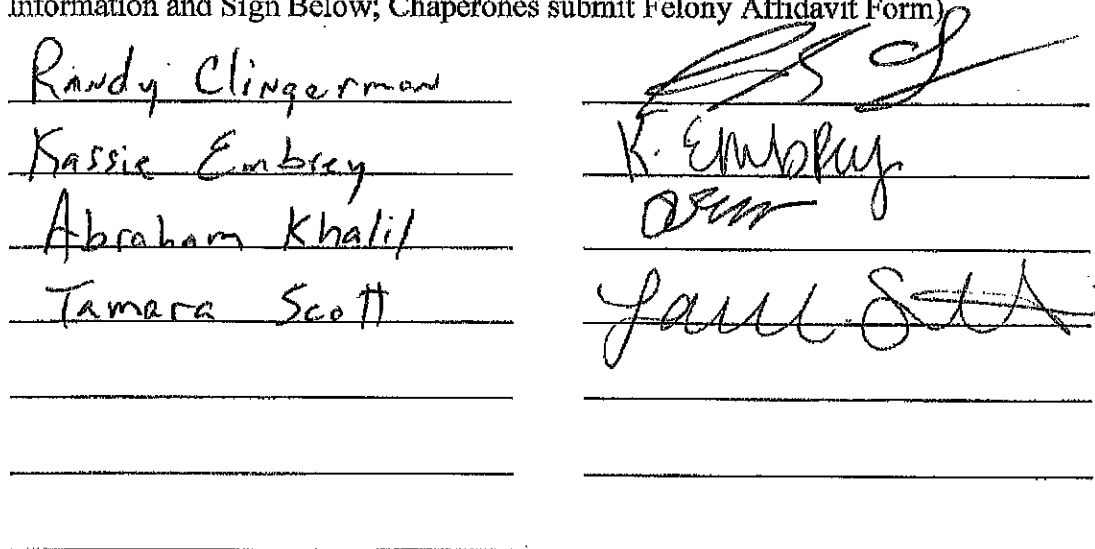 Information and Sign Below; Chaperones submit Felony Affidavit Form)
Randy Clingerman
Kassie Embrey K. Embrey
Abraham Khalil
Tamara Scott